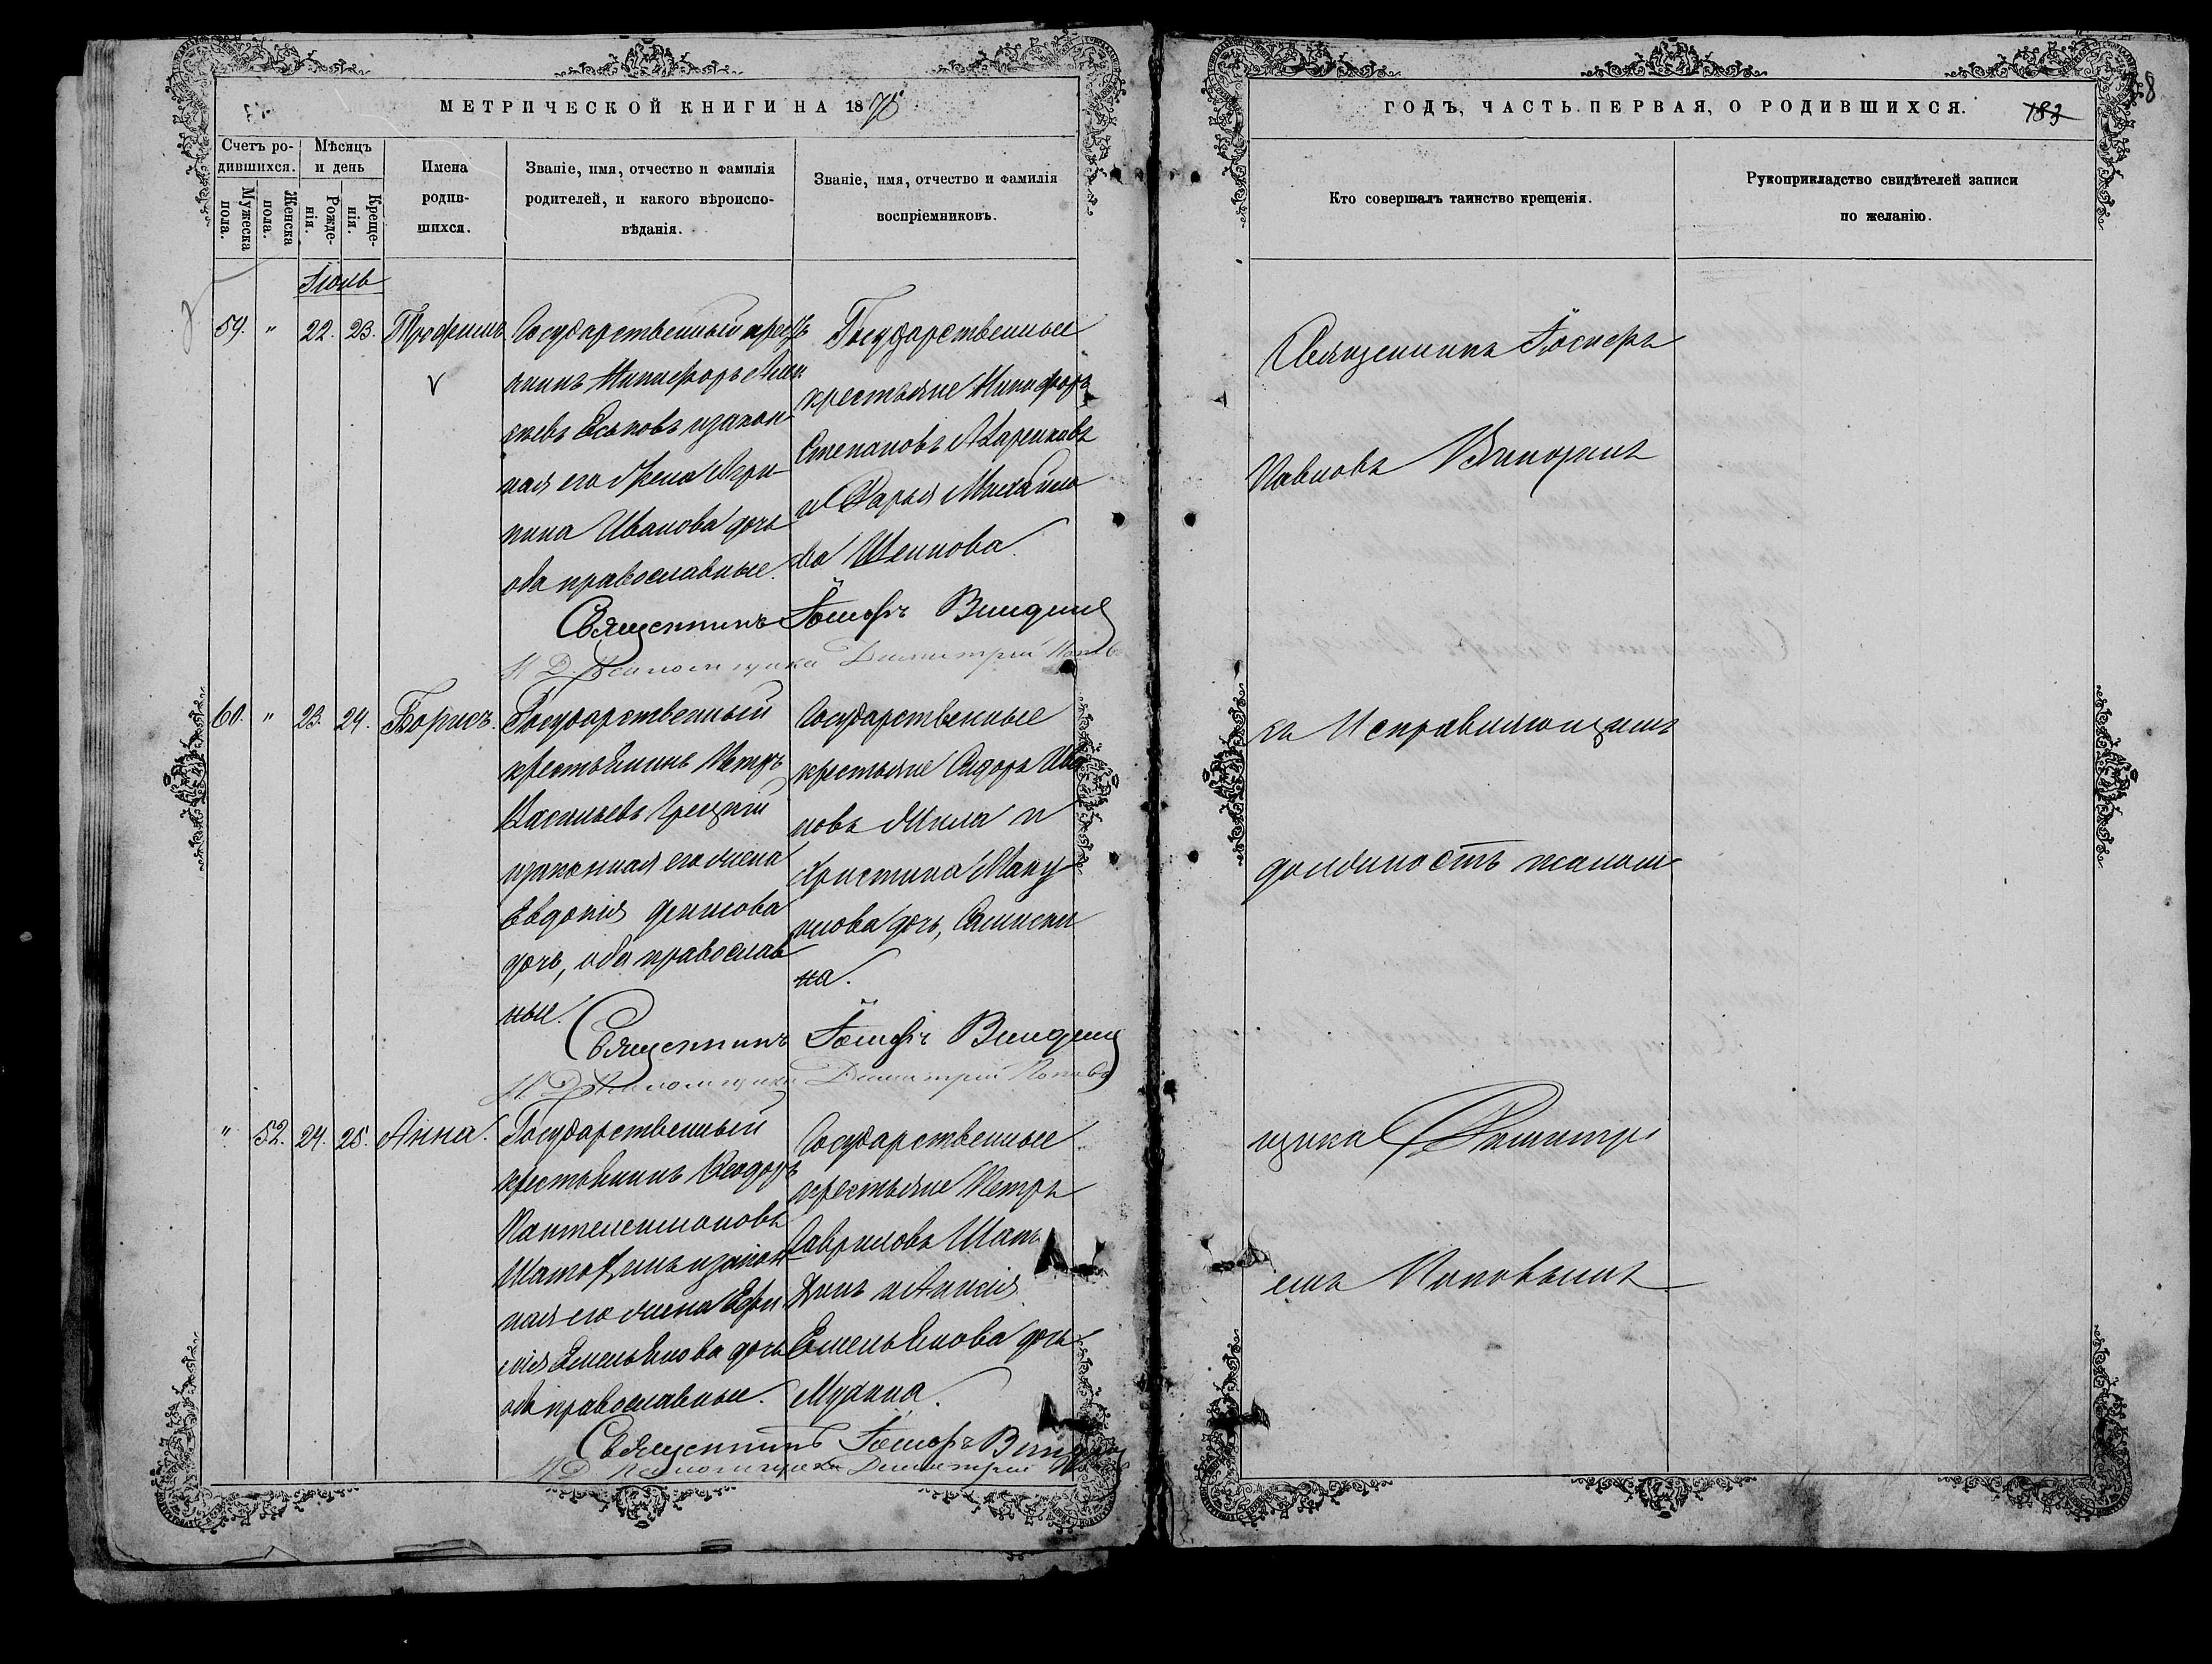 МЕТРИЧЕСКОЙ КНИГИ НА 1875
Счетъ ро-
дившихся.
Мужеска
пола.
Женска
пола.
Мѣсяцъ
и день
Рожде-
нія.
Креще-
нія.
Имена
родив-
шихся.
Званіе, имя, отчество и фамилія
родителей, и какого вѣроиспо-
вѣданія.
Званіе, имя, отчество и фамилія
воспріемниковъ.
Іюль
59. " 22. 23. Трофимъ
Государственный кресть
янинъ Никифоръ
Еськовъ и закон
ная его жена Агри
пина Иванова дочь
оба православные.
Государственные
крестьяне Никифоръ
Степановъ
и Дарья Михайло
ва
Священникъ Іосифъ
И. Д. Псаломщика Димитрій Поповъ
60. " 23. 24. Борисъ.
Государственный
крестьянинъ Петръ
Васильевъ Грецкій
и законная его жена
Евдокія Денисова
дочь, оба православ
ные.
Государственные
крестьяне Сидоръ Ива
новъ и
Христина
дочь,
на.
Священникъ Іосифъ
И. Д. Псаломщика Димитрій Поповъ
" 52. 24. 25. Анна.
Государственный
крестьянинъ Ѳеодоръ
Пантелеимоновъ
Шатохинъ и закон
ная его жена Ефи
мія Емельянова дочь
оба православные.
Государственные
крестьяне Петръ
Гавриловъ Шато
хинъ и
Емельянова дочь
Мухина.
Священникъ Іосифъ
И. Д. Псаломщика Димитрій
ГОДЪ, ЧАСТЬ ПЕРВАЯ, О РОДИВШИХСЯ.
183
8
Кто совершалъ таинство крещенія.
Рукоприкладство свидѣтелей записи
по желанію.
Священникъ Іосифъ
Павловъ
съ Исправляющимъ
должность псалом
щика Димитрі
емъ Поповымъ